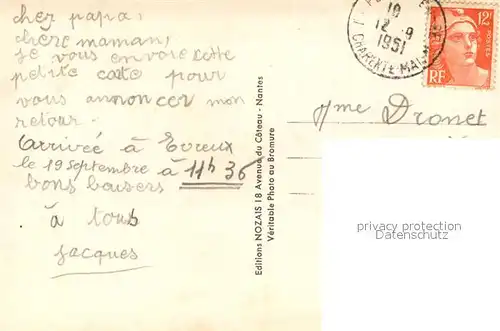 cher papa,
chere maman,
je vous envoie cette
petite carte pour
vous annoncer mon
retour.
Arrivée à Evreux
le 19 Septembre à 11h 36
bons baisers
à tous
Jacques
Editions NOZAIS 18 Avenue du Côteau - Nantes
Véritable Photo au Bromure
10
12 - 9
1951
CHARENTE-M
12F
POSTES
RF
Mme Dronet
privacy protection
Datenschutz